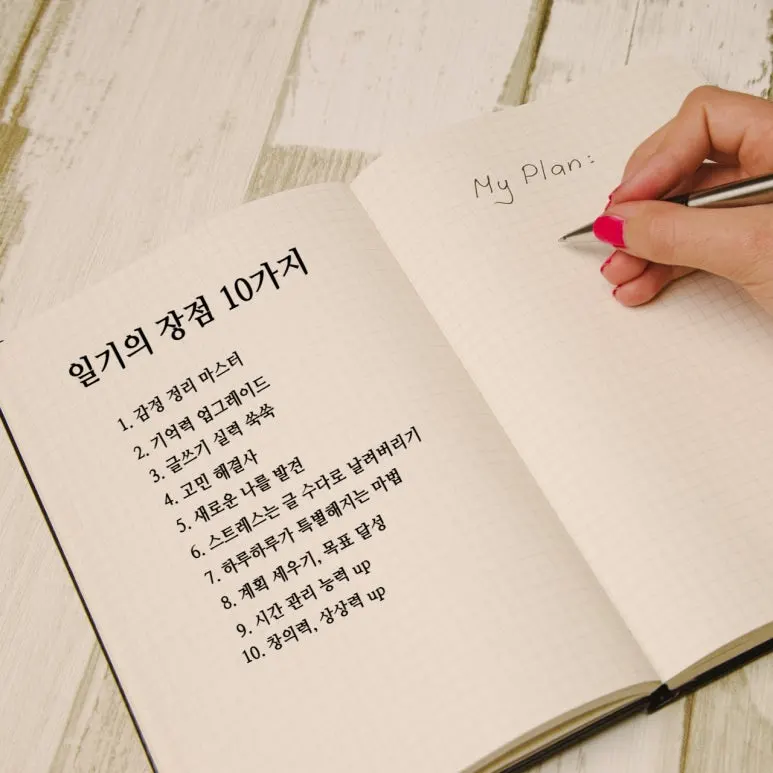 일기의 장점 10가지
1. 감정 정리 마스터
2. 기억력 업그레이드
3. 글쓰기 실력 쑥쑥
4. 고민 해결사
5. 새로운 나를 발견
6. 스트레스는 글 수다로 날려버리기
7. 하루하루가 특별해지는 마법
8. 계획 세우기, 목표 달성
9. 시간 관리 능력 up
10. 창의력, 상상력 up
My Plan: